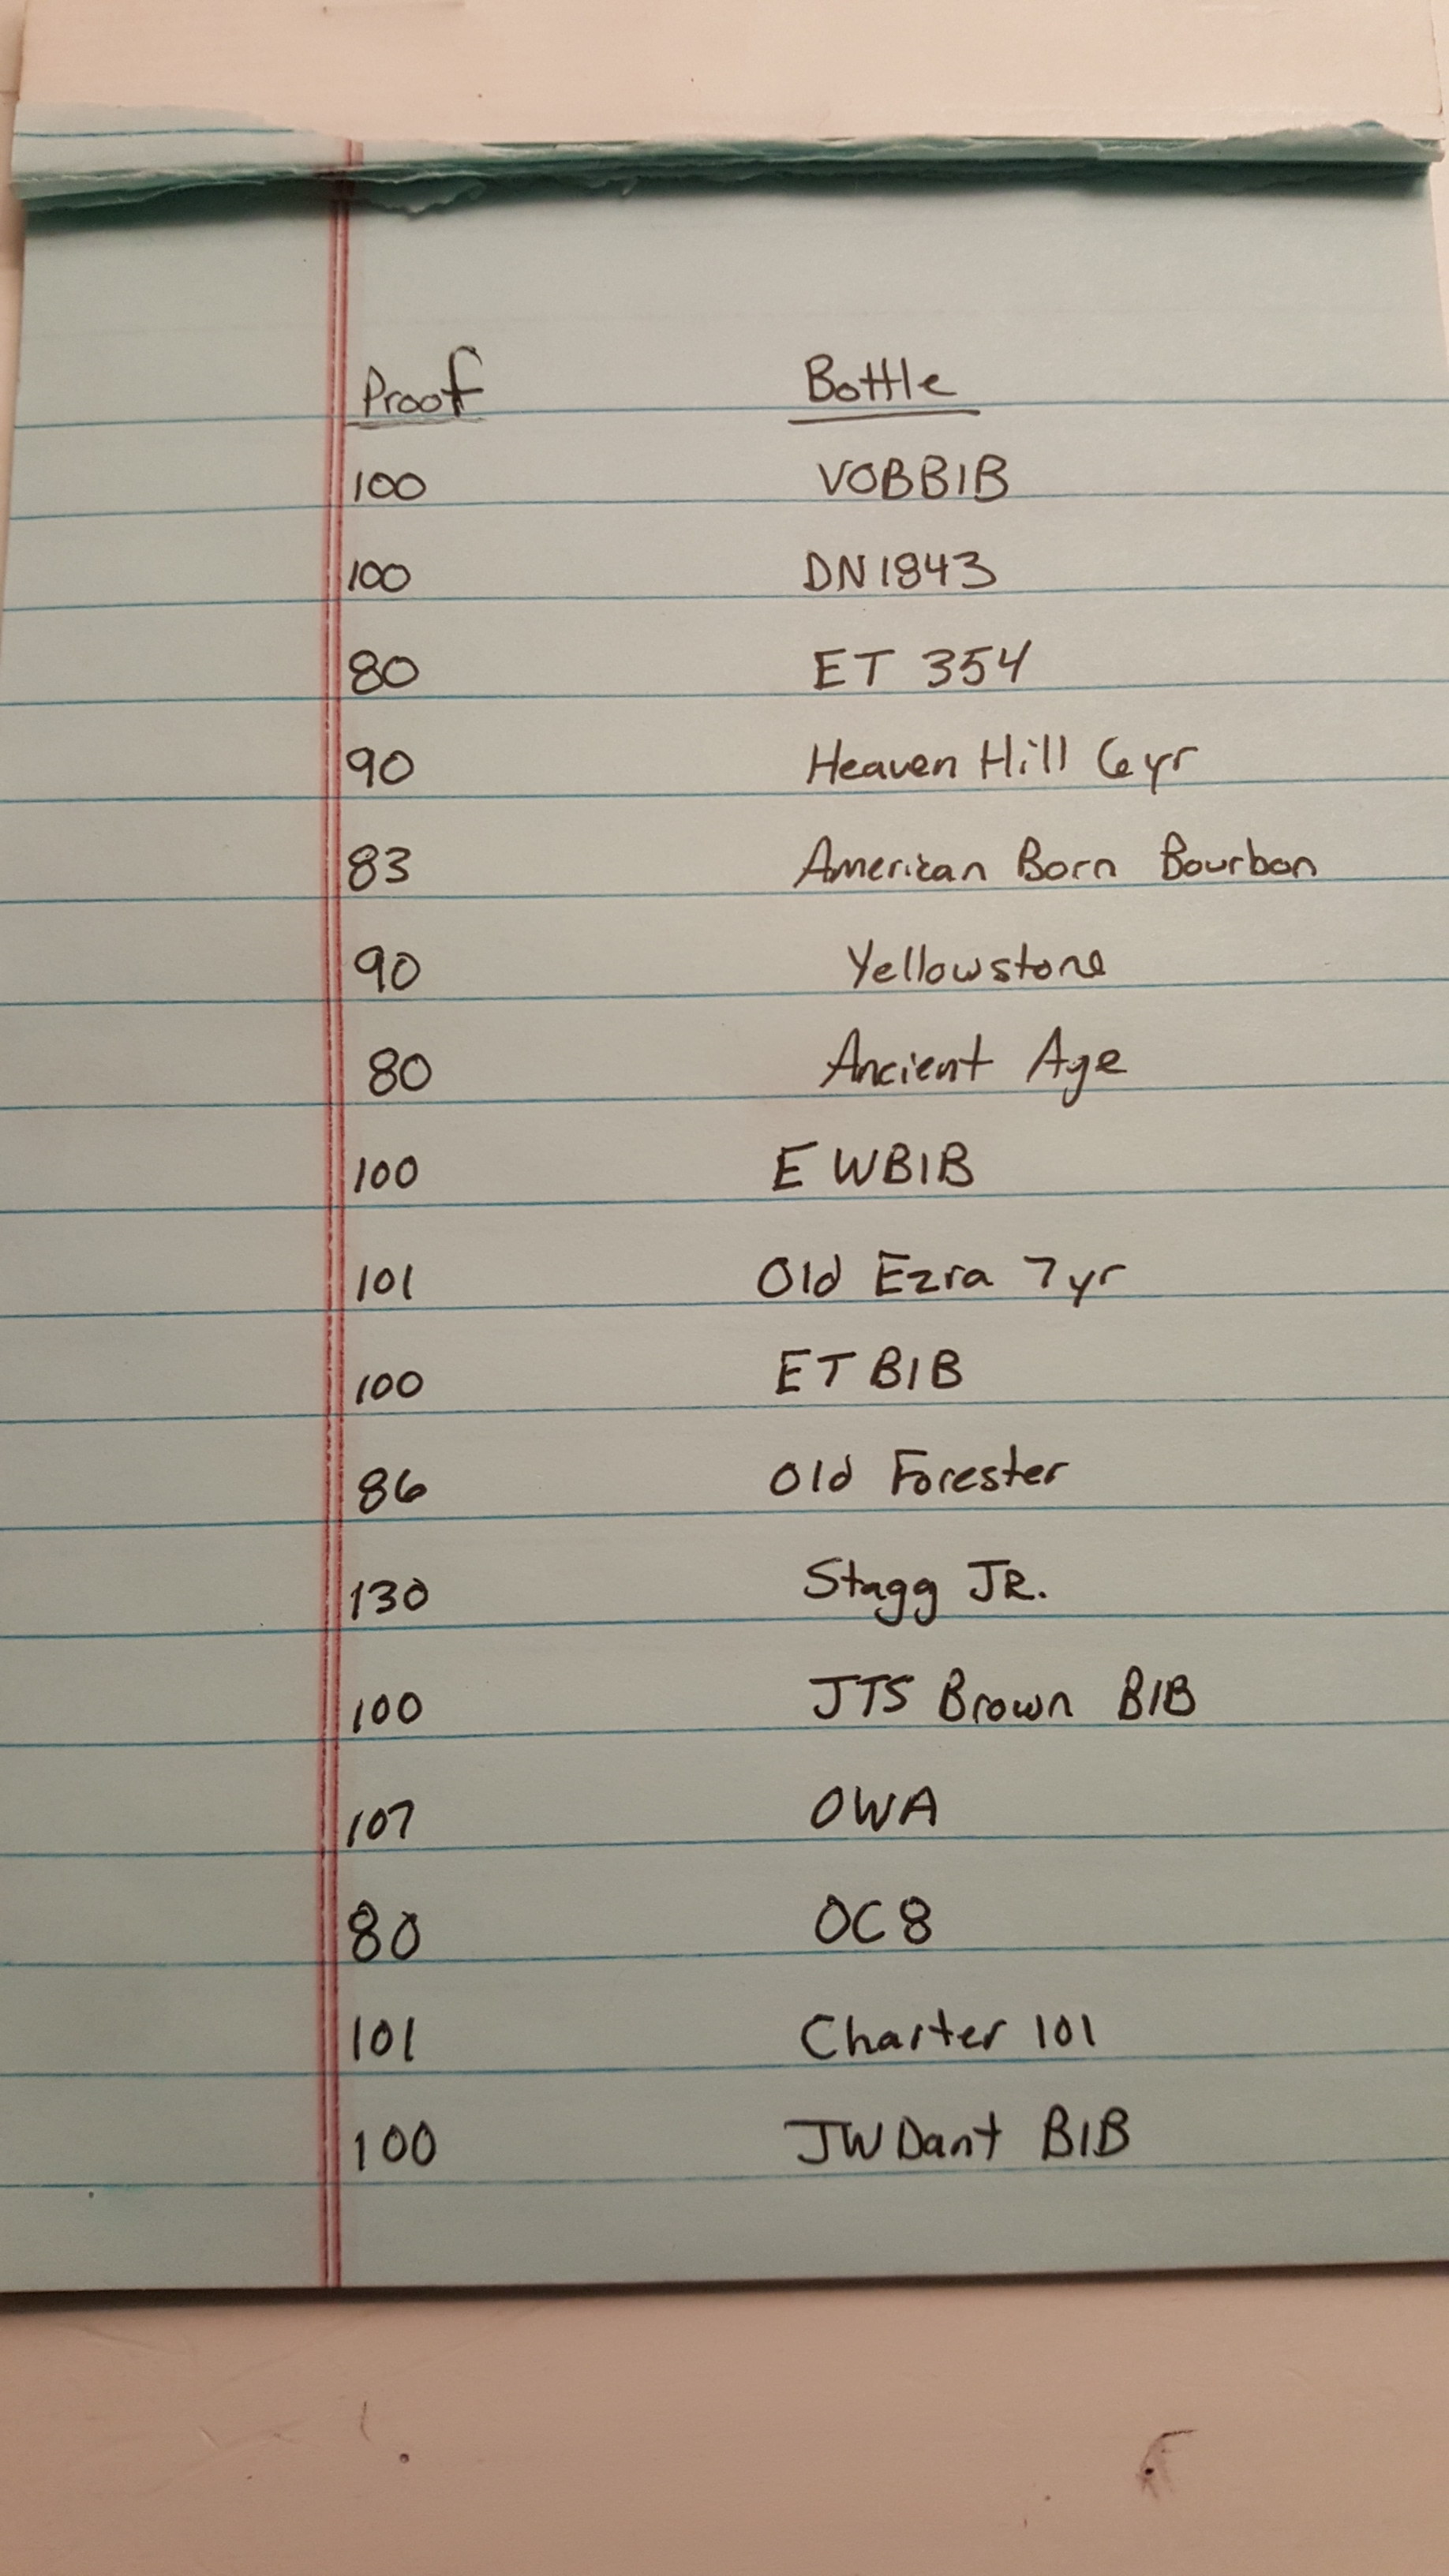 Proof Bottle
100 VOBBIB
100 DN1843
80 ET 354
90 Heaven Hill 6yr
83 American Born Bourbon
90 Yellowstone
80 Ancient Age
100 EWBIB
101 Old Ezra 7yr
100 ET BIB
86 Old Forester
130 Stagg JR.
100 JTS Brown BIB
107 OWA
80 OC8
101 Charter 101
100 JW Dant BIB